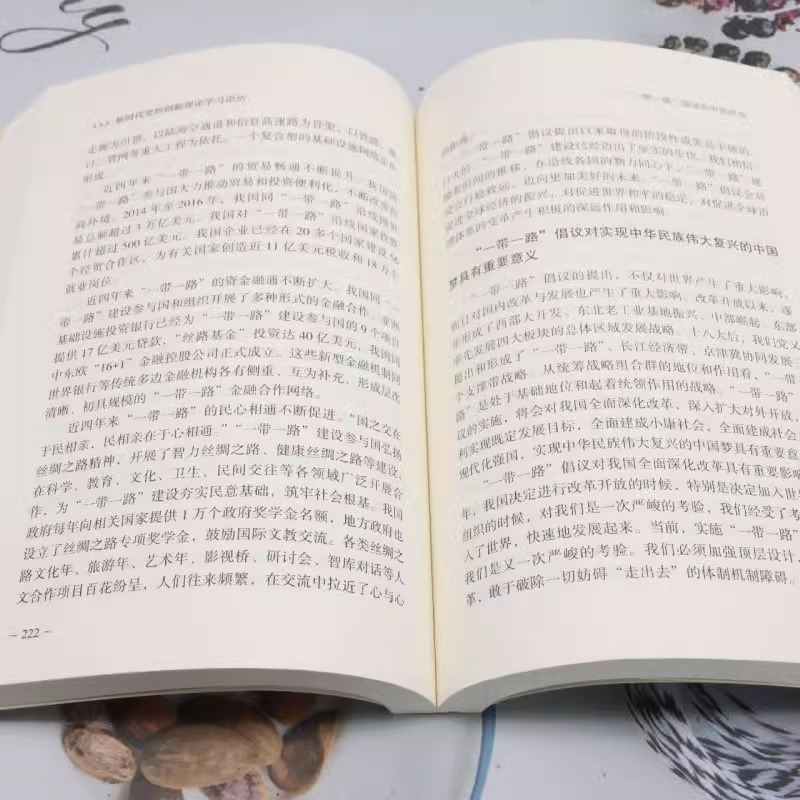 新时代党的创新理论学习论丛
走廊为引领，以陆海空通道和信息高速路为骨架，以铁路、港
口、管网等重大工程为依托，一个复合型的基础设施网络正在
形成。
近四年来“一带一路”的贸易畅通不断提升。我国同
“一带一路”参与国大力推动贸易和投资便利化，不断改善营
商环境。2014年至2016年，我国同“一带一路”沿线国家贸
易总额超过3万亿美元。我国对“一带一路”沿线国家投资
累计超过500亿美元。我国企业已经在20多个国家建设56
个经贸合作区，为有关国家创造近11亿美元税收和18万个
就业岗位。
近四年来“一带一路”的资金融通不断扩大。我国同“一
带一路”建设参与国和组织开展了多种形式的金融合作。亚洲
基础设施投资银行已经为“一带一路”建设参与国的9个项目
提供17亿美元贷款，“丝路基金”投资达40亿美元，我国同
中东欧“16+1”金融控股公司正式成立。这些新型金融机制同
世界银行等传统多边金融机构各有侧重、互为补充，形成层次
清晰、初具规模的“一带一路”金融合作网络。
近四年来“一带一路”的民心相通不断促进。“国之交在
于民相亲，民相亲在于心相通。”“一带一路”建设参与国弘扬
丝绸之路精神，开展了智力丝绸之路、健康丝绸之路等建设，
在科学、教育、文化、卫生、民间交往等各领域广泛开展合
作，为“一带一路”建设夯实民意基础，筑牢社会根基。我国
政府每年向相关国家提供1万个政府奖学金名额，地方政府也
设立了丝绸之路专项奖学金，鼓励国际文教交流。各类丝绸之
路文化年、旅游年、艺术年、影视桥、研讨会、智库对话等人
文合作项目百花纷呈，人们往来频繁，在交流中拉近了心与心
– 222 –
的距离。
“一带一路”倡议提出以来取得的阶段性成果是丰硕的、
巨大的，“一带一路”建设已经迈出了坚实的步伐。我们相信，
随着时间的推移，在沿线各国的勠力同心下，“一带一路”建
设会行稳致远，迈向更加美好的未来。“一带一路”倡议会对
促进全球经济的振兴，对促进世界和平的稳定，对促进全球治
理体系的变革产生积极的深远作用和影响。
“一带一路”倡议对实现中华民族伟大复兴的中国
梦具有重要意义
“一带一路”倡议的提出，不仅对世界产生了重大影响，
而且对国内改革与发展也产生了重大影响。改革开放以来，逐
步形成了西部大开发、东北老工业基地振兴、中部崛起、东部
率先发展四大板块的总体区域发展战略。十八大后，我们党又
提出和形成了“一带一路”、长江经济带、京津冀协同发展三
个支撑带战略。从统筹战略组合群的地位和作用看，“一带一
路”是处于基础地位和起着统领作用的战略。“一带一路”
议的实施，将会对我国全面深化改革、深入扩大对外开放，
利实现既定发展目标，全面建成小康社会，全面建成社会主
现代化强国，实现中华民族伟大复兴的中国梦具有重要影响
“一带一路”倡议对我国全面深化改革具有重要影响
年，我国决定进行改革开放的时候，特别是决定加入世
组织的时候，对我们是一次严峻的考验，我们经受了考
入了世界，快速地发展起来。当前，实施“一带一路”
我们是又一次严峻的考验。我们必须加强顶层设计，
革，敢于破除一切妨碍“走出去”的体制机制障碍。